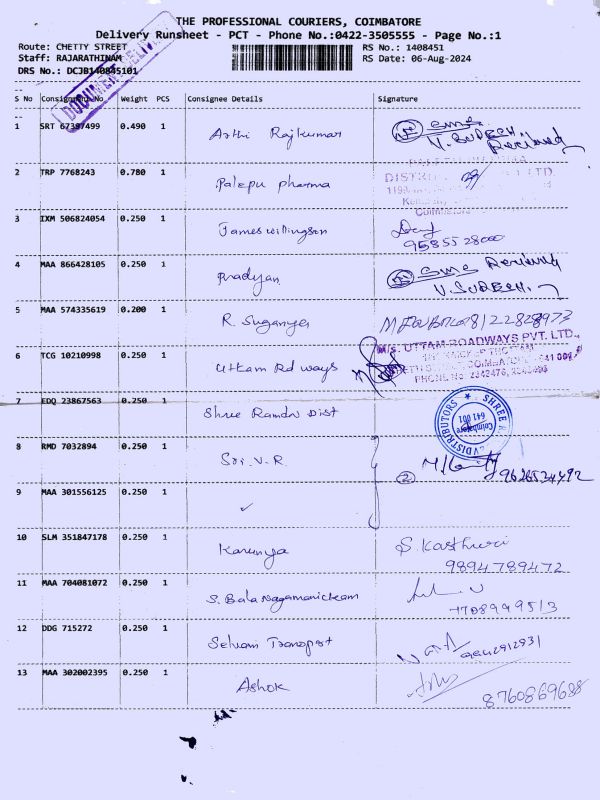 THE PROFESSIONAL COURIERS, COIMBATORE
Delivery Runsheet - PCT - Phone No.:0422-3505555 - Page No.:1
Route: CHETTY STREET
RS No.: 1408451
Staff: RAJARATHINAM
RS Date: 06-Aug-2024
DRS No.: DCJB140845101
S No Consignment No Weight PCS Consignee Details Signature
1 SRT 67397499 0.490 1 Arthi Rajkumar V. SURESH. Received
2 TRP 7768243 0.780 1 Palepu pharma
3 IXM 506824054 0.250 1 James willingson 9585528000
4 MAA 866428105 0.250 1 Pradyan Received V. SURESH.
5 MAA 574335619 0.200 1 R. Suganya 8122828973
6 TCG 10210998 0.250 1 Uttam Rd ways
M/S. UTTAM ROADWAYS PVT. LTD.,
PHONE No: 2342476,
7 EDQ 23867563 0.250 1 Shree Ramdv Dist
SHREE DISTRIBUTORS Coimbatore 641 001
8 RMD 7032894 0.250 1 Sri. V. R. 2
9 MAA 301556125 0.250 1 ✓
10 SLM 351847178 0.250 1 Karunya S. Kasthuri
9894789472
11 MAA 704081072 0.250 1 S. Bala Nagamanickam
7708949513
12 DDG 715272 0.250 1 Selvam Transport 9842912931
13 MAA 302002395 0.250 1 Ashok
8760869688